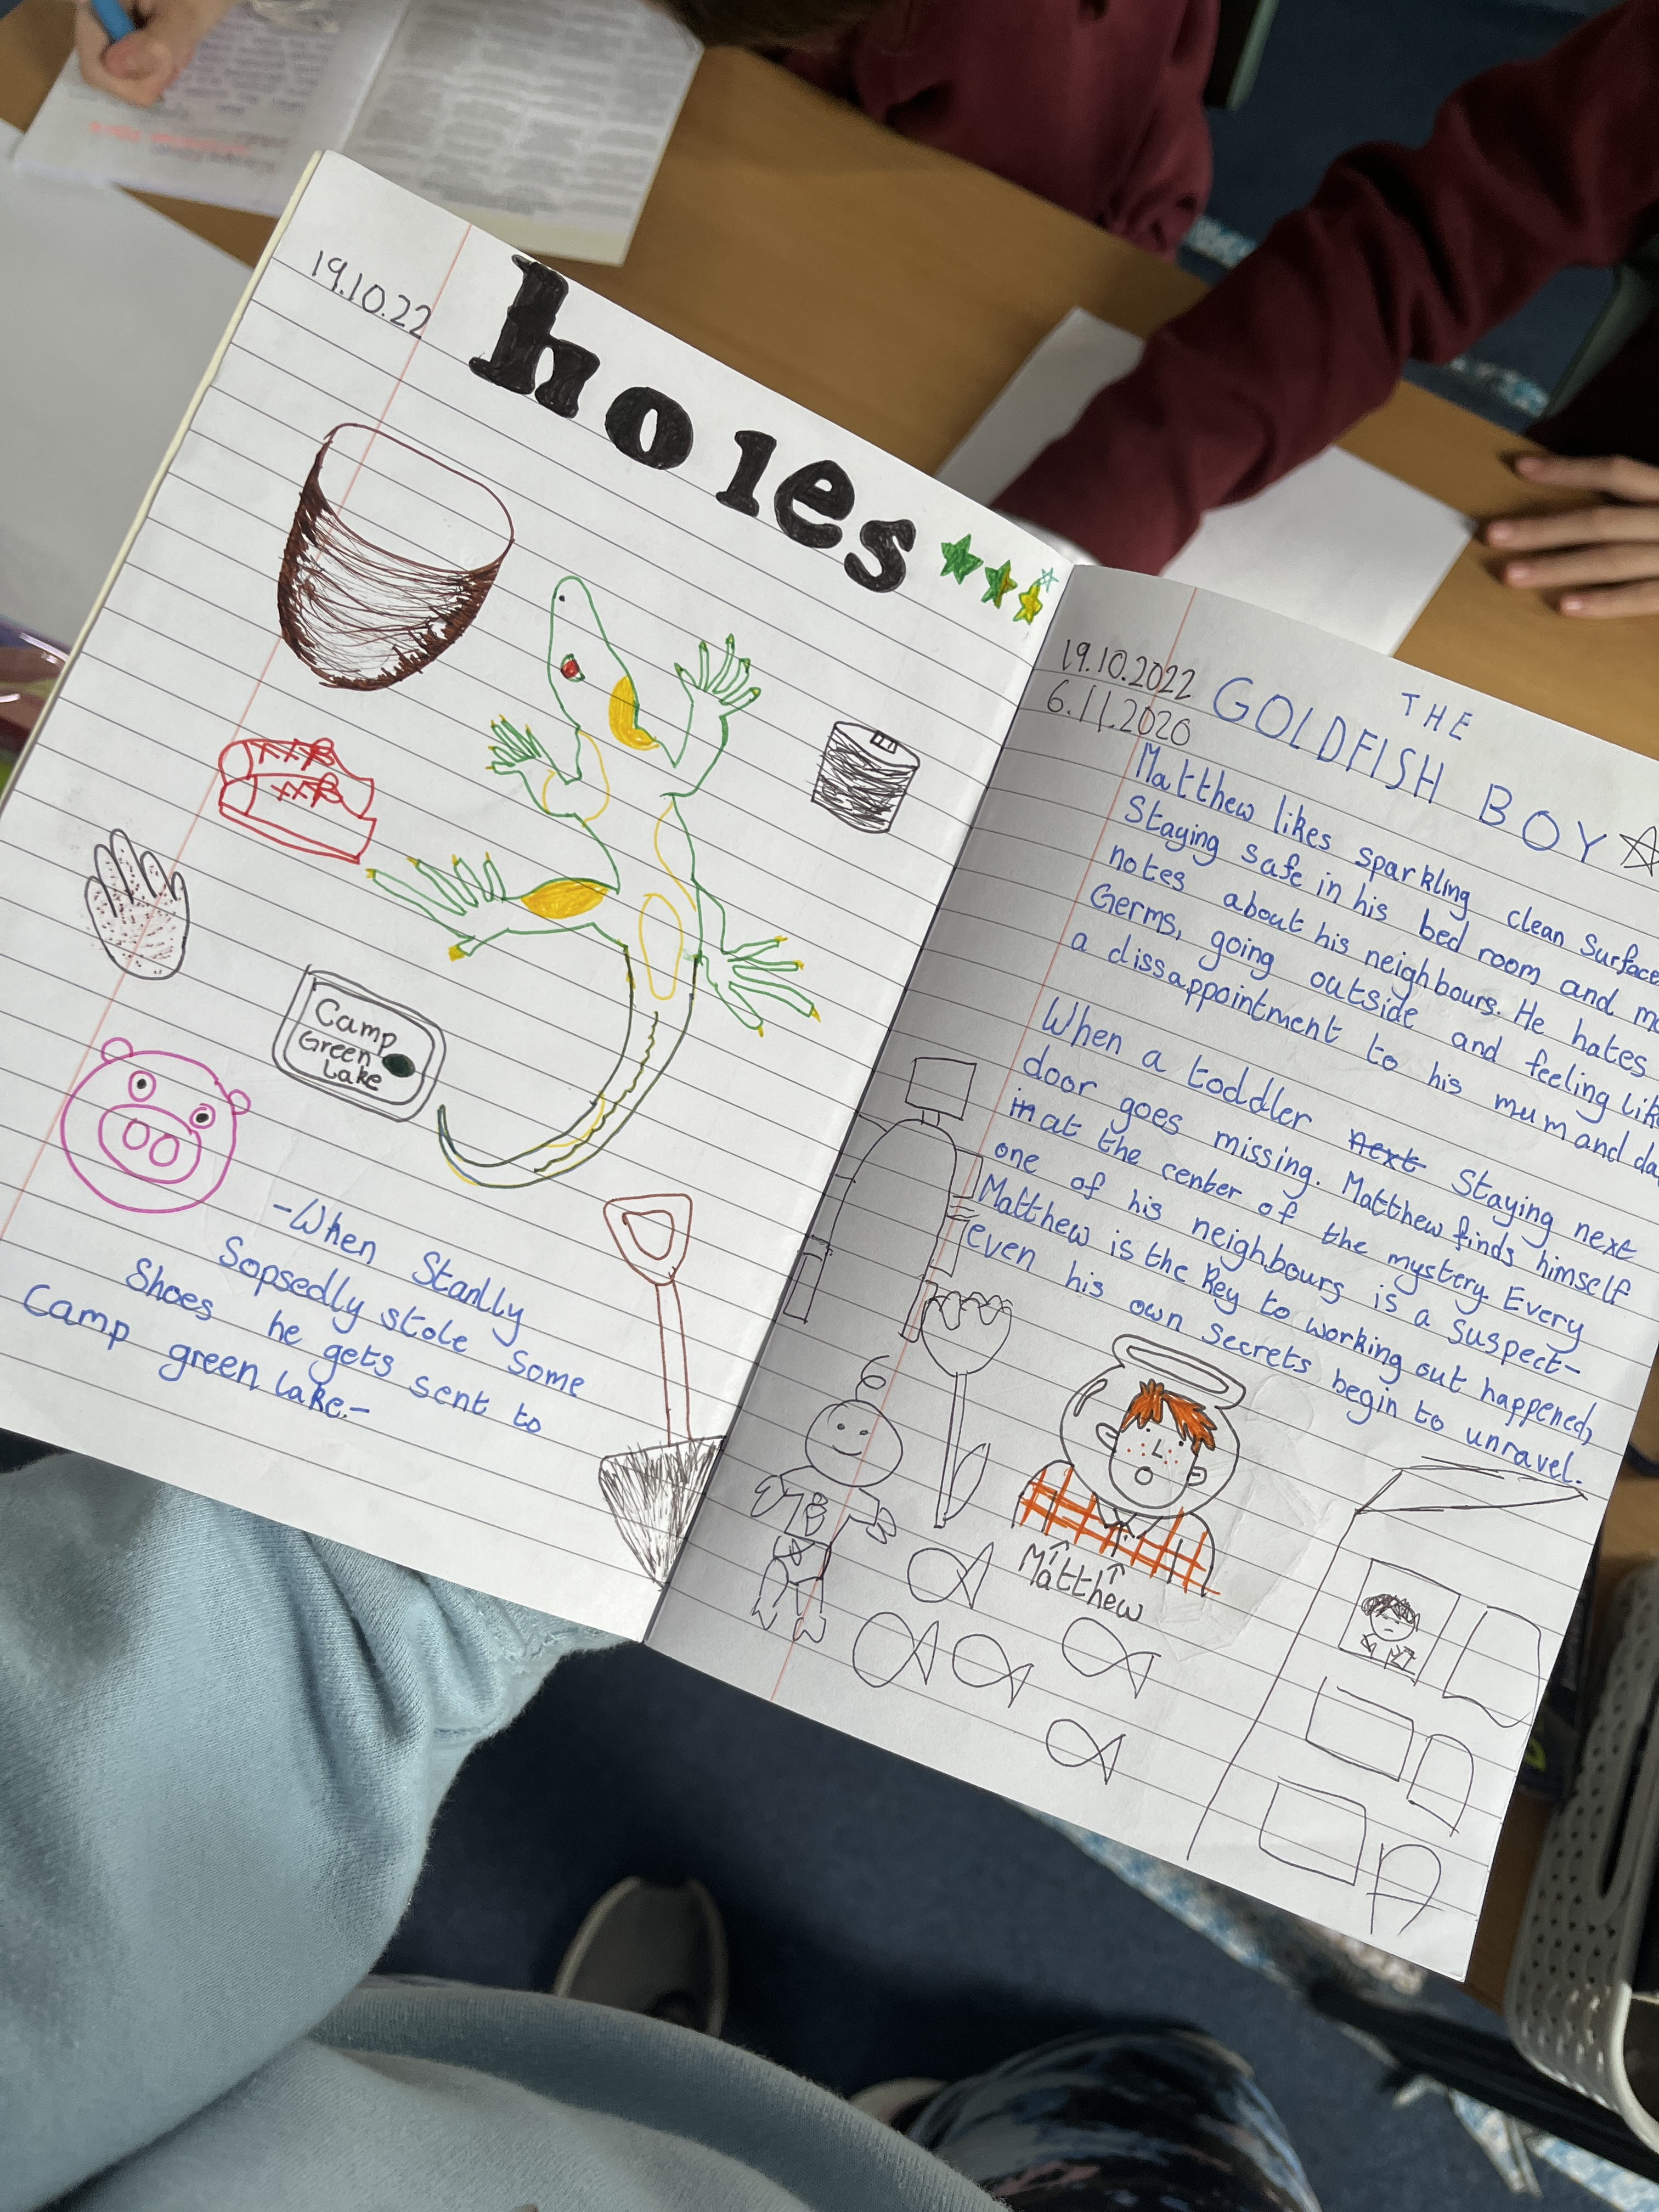 19.10.22
holes
Camp
Green
Lake
-When Stanlly
Sopsedly stole some
Shoes he gets sent to
Camp green lake.-
19.10.2022
6.11.2020
THE
GOLDFISH BOY
Matthew likes sparkling clean surface
Staying safe in his bed room and
notes about his neighbours. He hates
Germs, going outside and feeling lik
a dissappointment to his mum and da
When a toddler next Staying next
door goes missing. Matthew finds himself
in at the center of the mystery. Every
one of his neighbours is a suspect-
Matthew is the key to working out happened,
even his own secrets begin to unravel.
Matthew